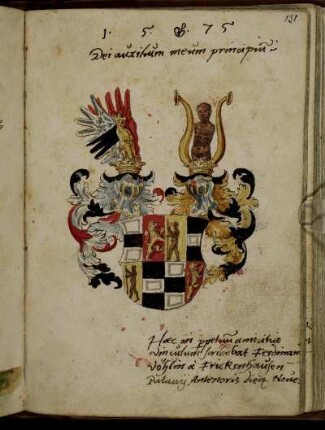 131
1 · 5 · 75
Dei auxilium meum principiū
Hæc in ppetuū amicitiæ
vinculum scribebat Ferdinan
Vöhlin à Frickenhausen
Patavij Antenoris